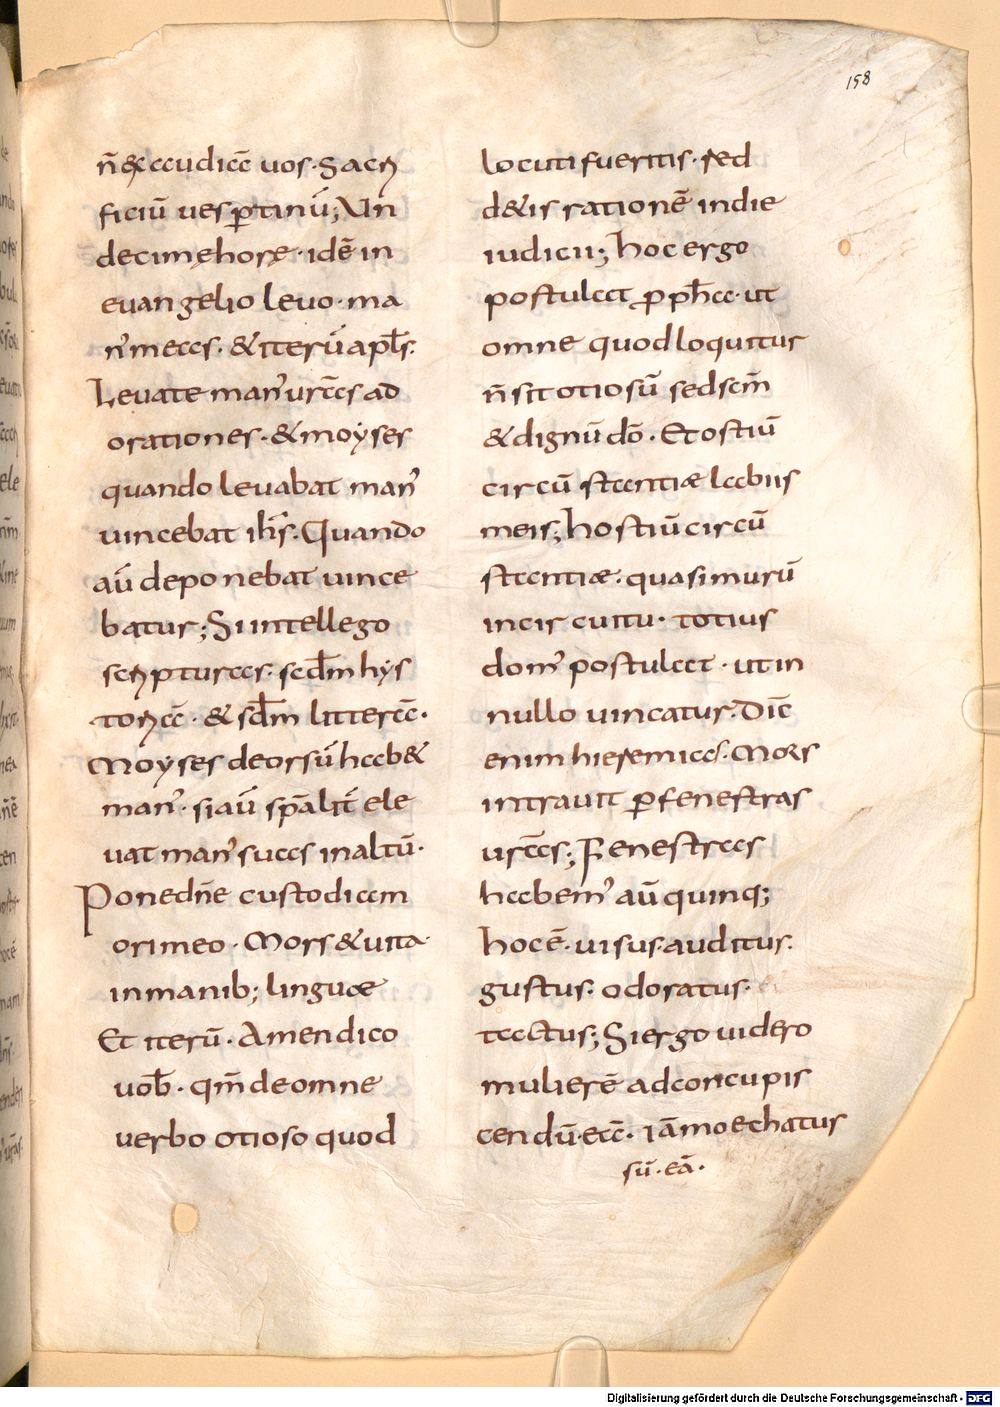 158
n̄ exaudiat vos. Sacri
ficiū vesꝑtinū; Vn
decimę horę. idē in
evangelio levo. ma
n' meas. & iterū apłs.
Levate man' urās ad
orationes. & moyses
quando levabat man'
vincebat ih̄s. Quando
aū deponebat vince
batur; Si intellego
scripturas. secd̄m hys
toriā. & scd̄m litterā.
Moyses deorsū hab&
man'. si aū sp̄alit̄ ele
vat man' suas in altū.
Pone dn̄e custodiam
ori meo. Mors & vita
in manib; linguae
Et iterū. Amen dico
vob̄. qm̄ de omne
verbo otioso quod
locuti fueritis. red
d&is rationē in die
iudicii; hoc ergo
postulat ꝓph̄a. ut
omne quod loquitur
n̄ sit otiosū sed scm̄
& dignū dō. Et ostiū
circū stantiae labiis
meis; hostiū circū
stantiae. quasi murū
in circuitu. totius
dom' postulat. ut in
nullo vincatur. Dic̄
enim hieremias. Mors
intravit ꝑ fenestras
urās; Fenestras
habem' aū quinq;
hoc ē. visus. auditus.
gustus. odoratus.
tactus; Si ergo videro
mulierē ad concupis
cendū eā. iā moechatus
sū. eā.
Digitalisierung gefördert durch die Deutsche Forschungsgemeinschaft - DFG